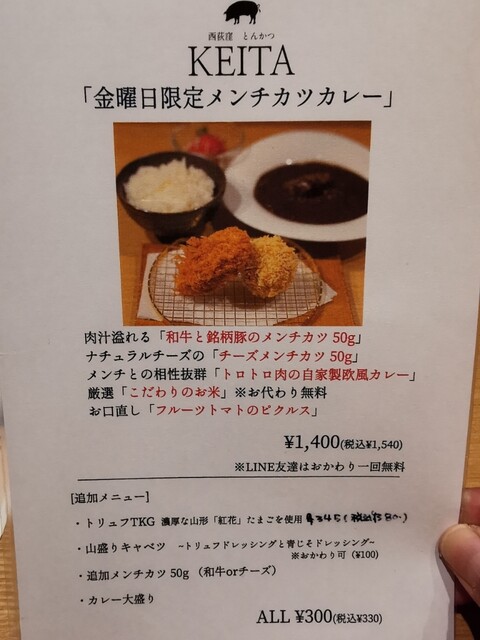 西荻窪 とんかつ
KEITA
「金曜日限定メンチカツカレー」
肉汁溢れる「和牛と銘柄豚のメンチカツ 50g」
ナチュラルチーズの「チーズメンチカツ 50g」
メンチとの相性抜群「トロトロ肉の自家製欧風カレー」
厳選「こだわりのお米」※お代わり無料
お口直し「フルーツトマトのピクルス」
¥1,400(税込¥1,540)
※LINE友達はおかわり一回無料
[追加メニュー]
・トリュフTKG 濃厚な山形「紅花」たまごを使用
・山盛りキャベツ ~トリュフドレッシングと青じそドレッシング~
※おかわり可（¥100）
・追加メンチカツ 50g （和牛orチーズ）
・カレー大盛り
ALL ¥300(税込¥330)